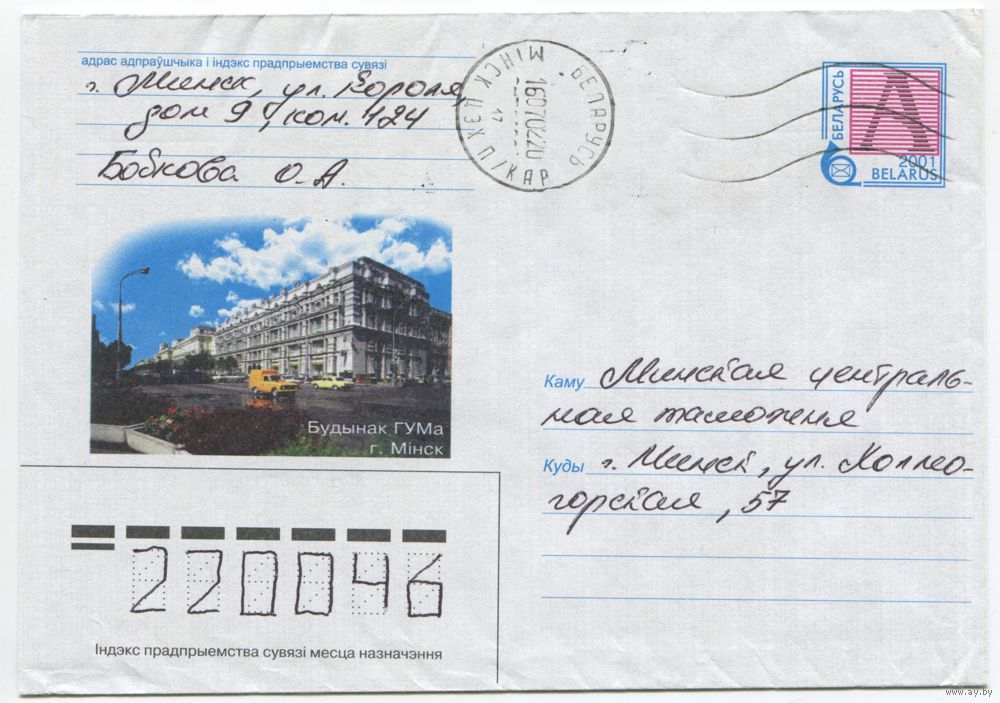 адрас адпраўшчыка і індэкс прадпрыемства сувязі
г. Минск, ул. Короля,
дом 9, ком. 124
Бобкова О. А.
БЕЛАРУСЬ
МІНСК
160702 20
17
П/КАР
БЕЛАРУСЬ
A
2001
BELARUS
Будынак ГУМа
г. Мінск
Каму Минская централь-
ная таможня
Куды г. Минск, ул. Холмо-
горская, 57
220046
Індэкс прадпрыемства сувязі месца назначэння
www.ay.by